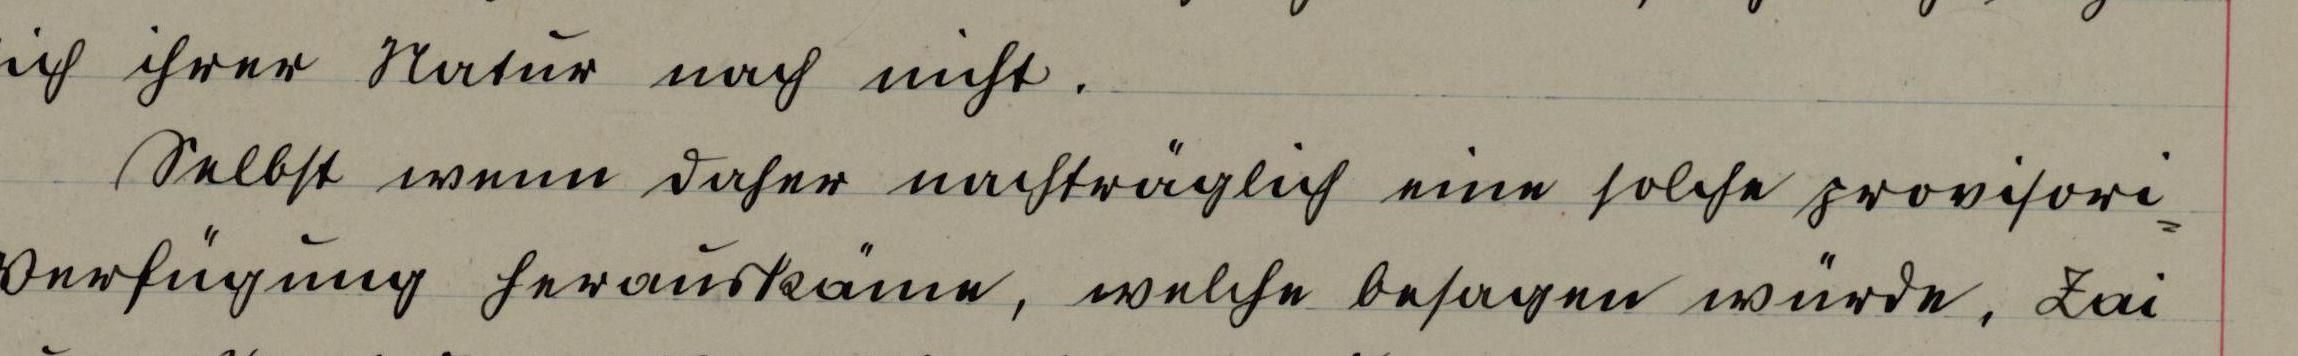 ich ihrer Natur nach nicht.
Selbst wenn daher nachträglich eine solche provisori=
Verfügung herauskäme, welche besagen würde, Zai